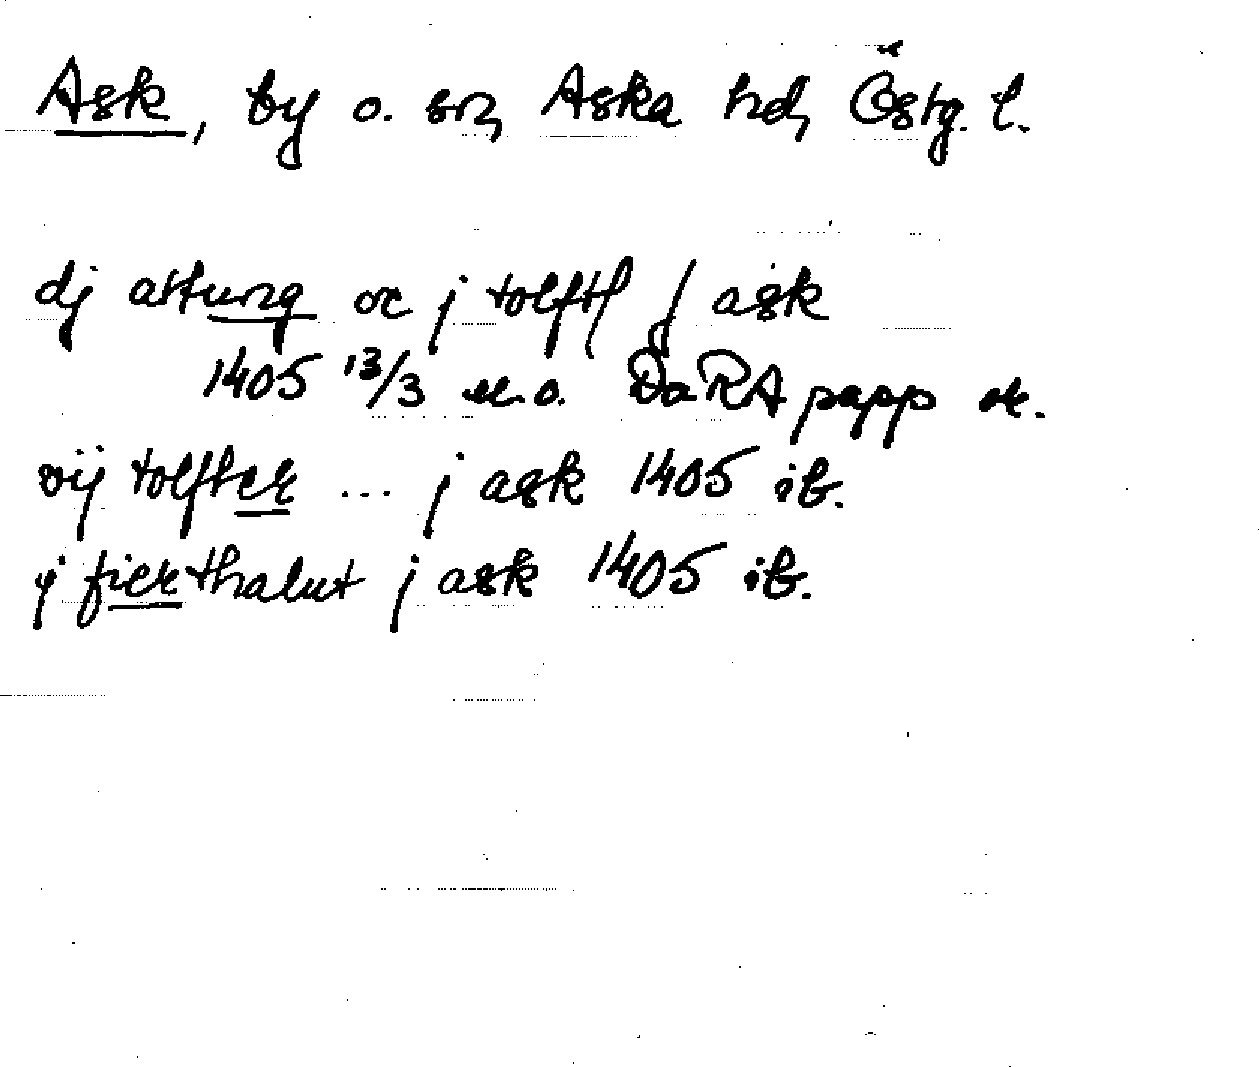 Ask, by o. sn, Aska hd, Östg. l.
dj attung oc j tolfft j ask
1405 13/3 u.o. DaRA papp or.
vij tolfter ... j ask 1405 ib.
ij fierthalut j ask 1405 ib.